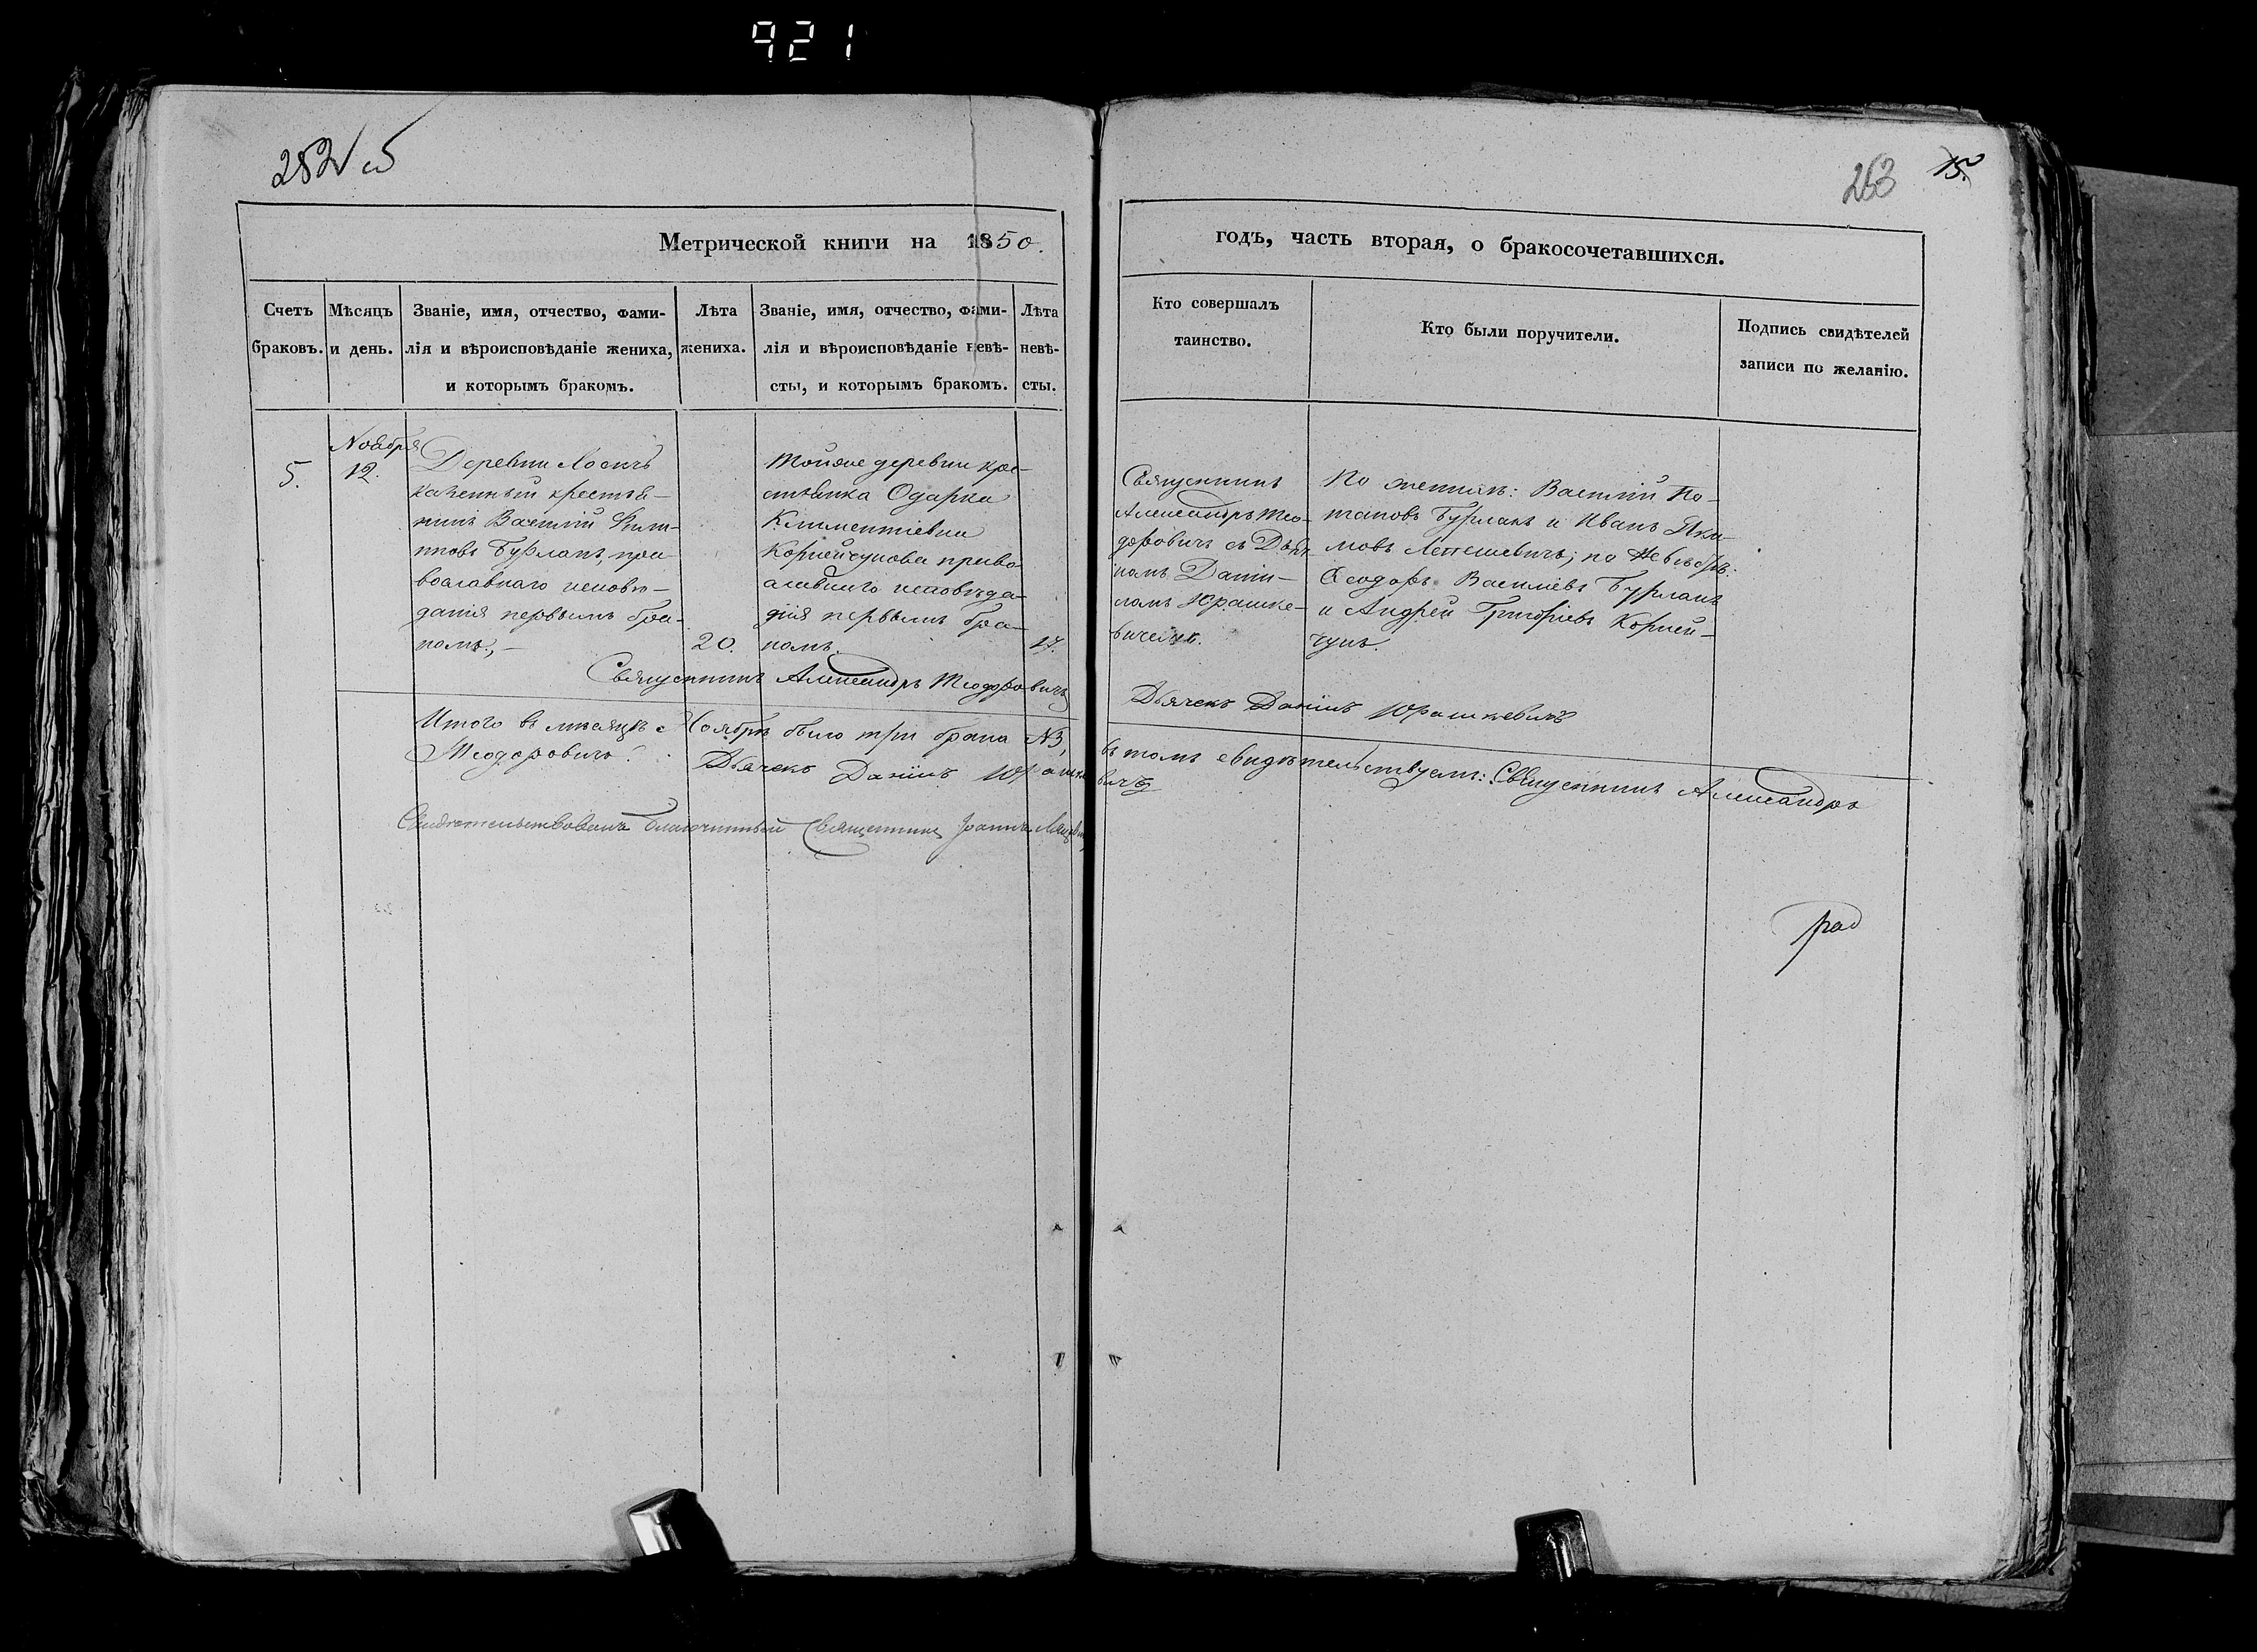 921
263
15.
Метрической книги на 1850.
годъ, часть вторая, о бракосочетавшихся.
Счетъ браковъ.
Мѣсяцъ и день.
Званіе, имя, отчество, фами-
лія и вѣроисповѣданіе жениха,
и которымъ бракомъ.
Лѣта
жениха.
Званіе, имя, отчество, фами-
лія и вѣроисповѣданіе невѣ-
сты, и которымъ бракомъ.
Лѣта
невѣ-
сты.
Кто совершалъ
таинство.
Кто были поручители.
Подпись свидѣтелей
записи по желанію.
5.
Ноября
12.
Деревни
казенный крестья-
нинъ Василій
Бурлакъ, пра-
вославнаго исповѣ-
данія первымъ бра-
комъ,
20.
Тойже деревни кре-
стьянка Одарка
Климентіевна
Корнейчукова право
славнаго исповѣда-
нія первымъ бра-
комъ.
17.
Священникъ
Александръ Тео-
доровичъ съ Дьяч
комъ Даніи-
ломъ Юрашке-
вичемъ.
По женихѣ: Василій По-
таповъ Бурлакъ и Иванъ Яки-
мовъ Лепешевичъ; по Невѣстѣ:
Ѳеодоръ Василіевъ Бурлакъ
и Андрей Григоріевъ Корней-
чукъ.
Священникъ Александръ Теодоровичъ
Дьячекъ Даніилъ Юрашкевичъ
Итого въ мѣсяцѣ Ноябрѣ было три брака №3, въ томъ свидѣтельствуемъ: Священникъ Александръ
Теодоровичъ. Дьячекъ Даніилъ Юрашкевичъ
Благочинный Священникъ Іоаннъ